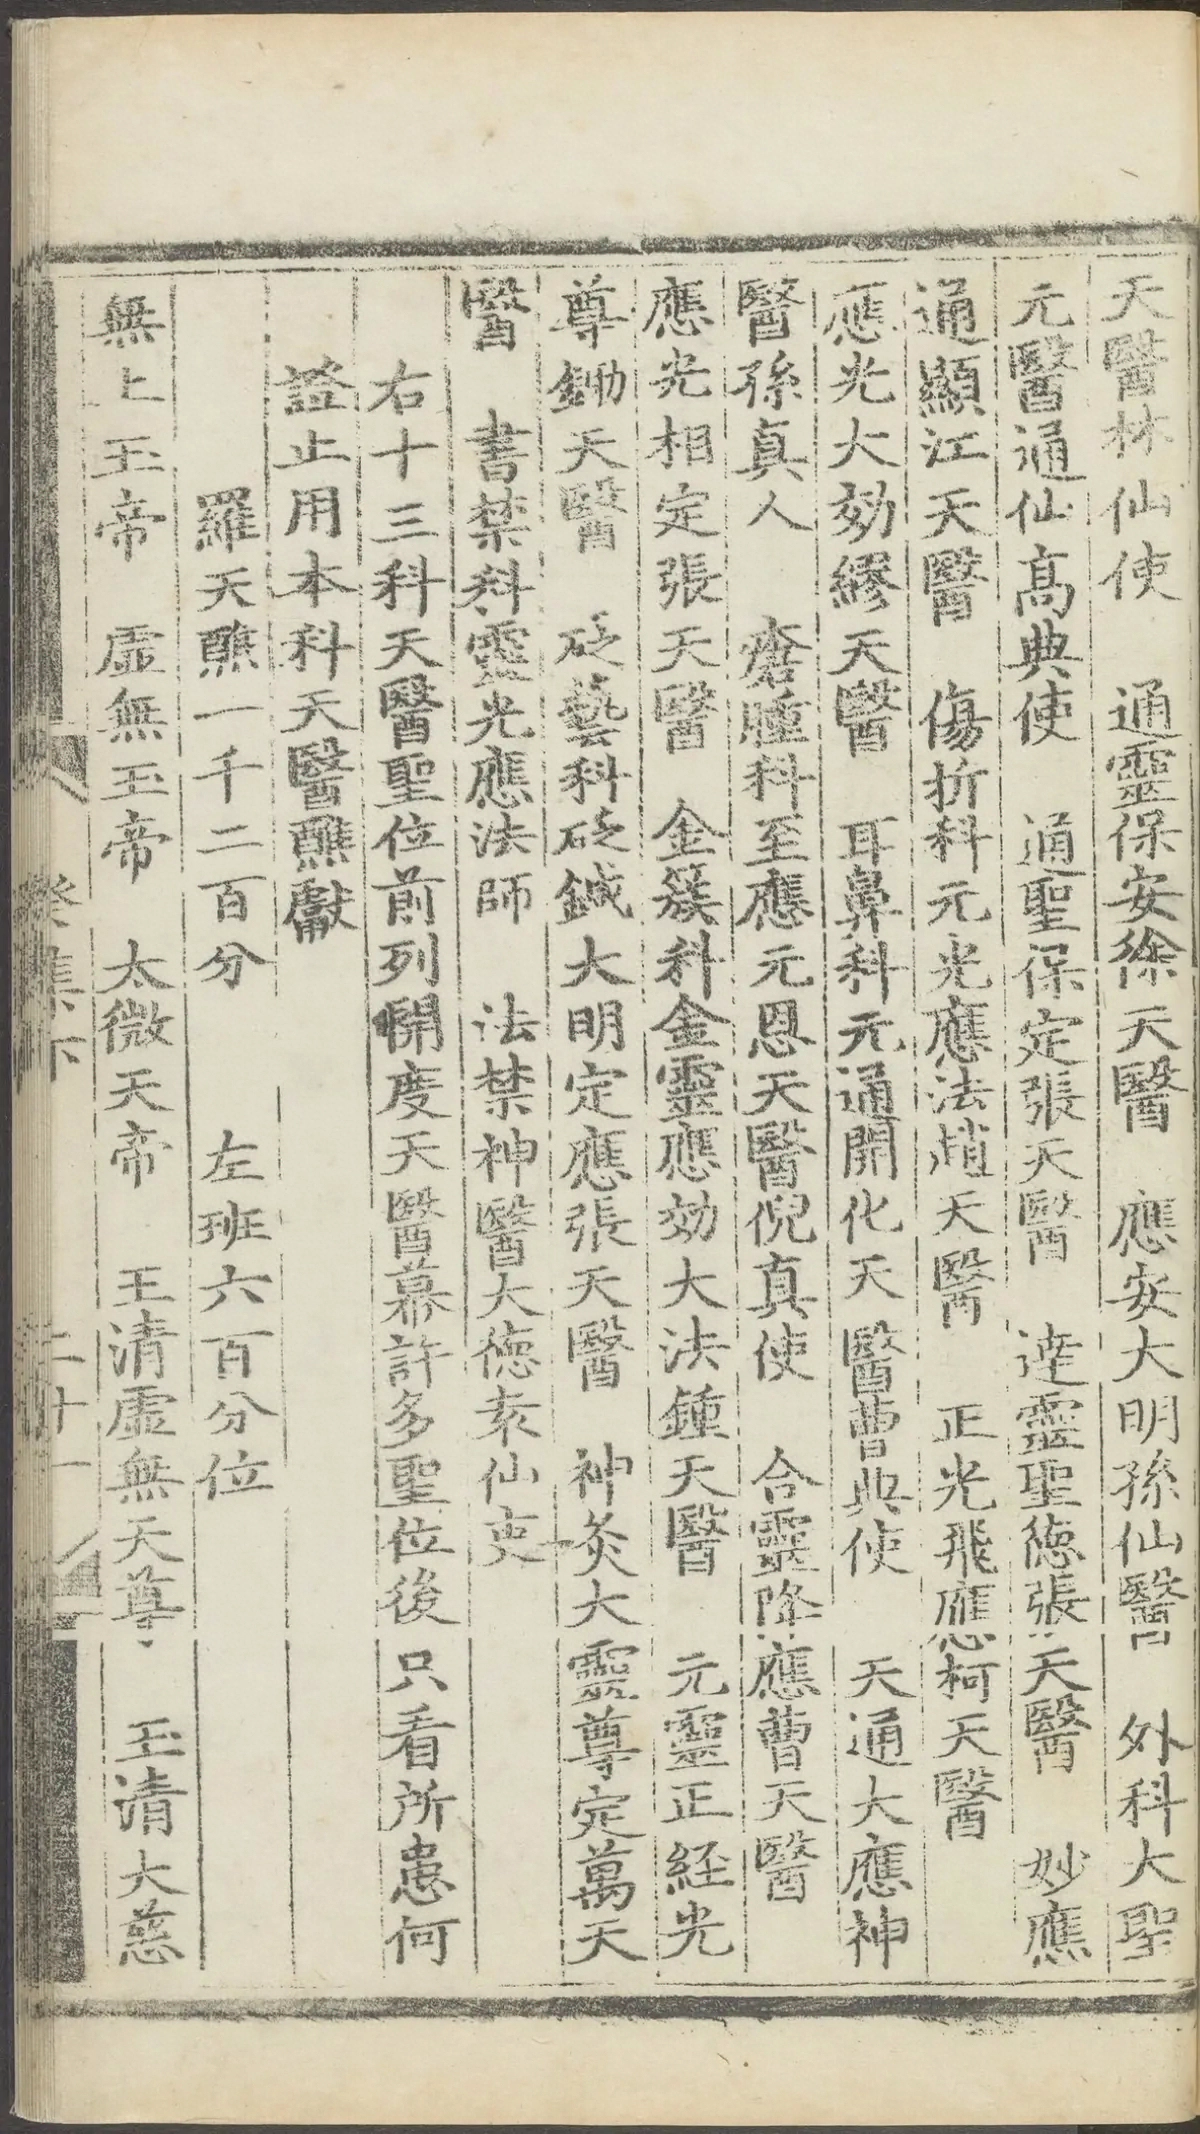 天醫林仙使　通靈保安徐天醫　應安大明孫仙醫　外科大聖
元醫通仙高典使　通聖保定張天醫　達靈聖德張天醫　妙應
通顯江天醫　傷折科元光應法趙天醫　正光飛應柯天醫
應光大効繆天醫　耳鼻科元通開化天醫曹典使　天通大應神
醫孫真人　瘡腫科至應元恩天醫倪真使　合靈降應曹天醫
應光相定張天醫　金簇科金靈應効大法鍾天醫　元靈正経光
尊鋤天醫　砭藝科砭鍼大明定應張天醫　神灸大靈尊定萬天
醫　書禁科靈光應法師　法禁神醫大德袁仙吏
右十三科天醫聖位前列開度天醫幕許多聖位後只看所患何
證止用本科天醫醮獻
羅天醮一千二百分　左班六百分位
無上玉帝　虛無玉帝　太微天帝　玉清虛無天尊　玉清大慈
癸集下　二十一